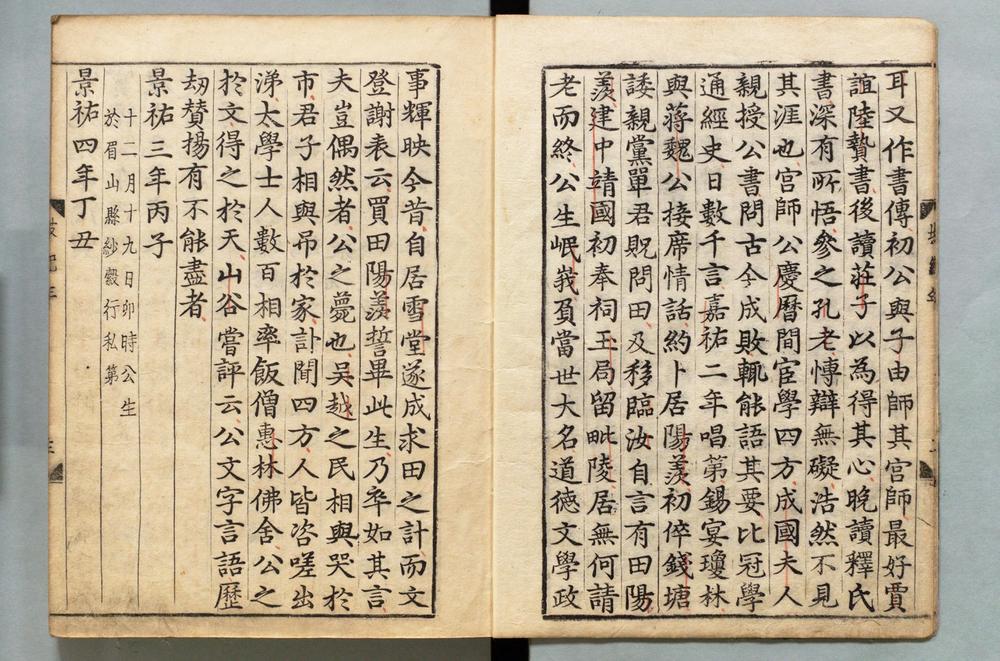 耳又作書傳初公與子由師其宮師最好賈
誼陸贄書後讀莊子以為得其心晚讀釋氏
書深有所悟參之孔老愽辯無礙浩然不見
其涯也宮師公慶曆間宦學四方成國夫人
親授公書問古今成敗輒能語其要比冠學
通經史日數千言嘉祐二年唱第錫宴瓊林
與蔣魏公接席情話約卜居陽羨初倅錢塘
諉親黨單君貺問田及移臨汝自言有田陽
羨建中靖國初奉祠玉局留毗陵居無何請
老而終公生岷峩負當世大名道德文學政
事輝映今昔自居雪堂遂成求田之計而文
登謝表云買田陽羨誓畢此生乃卒如其言
夫豈偶然者公之薨也吳越之民相與哭於
市君子相與吊於家訃聞四方人皆咨嗟出
涕太學士人數百相率飯僧惠林佛舍公之
於文得之於天山谷嘗評云公文字言語歷
劫賛揚有不能盡者
景祐三年丙子
十二月十九日卯時公生
於眉山縣紗縠行私第
景祐四年丁丑